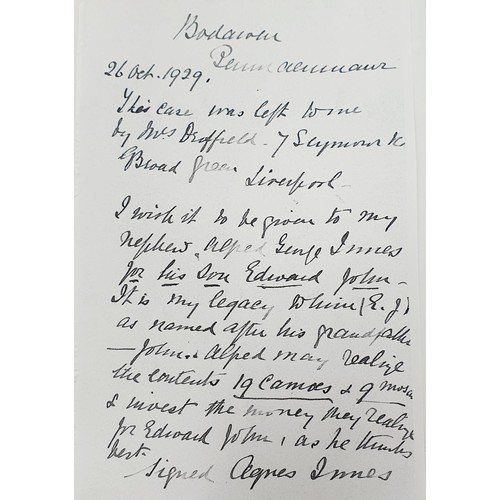 Bodawen
Penmaenmawr
26 Oct. 1929.
This case was left to me
by Mrs Driffield - 7 Seymour
Broad Green
Liverpool -
I wish it to be given to my
nephew Alfred George Innes
for his Son Edward John -
It is my legacy to him (E. J)
as named after his grandfather
- John. Alfred may realize
the contents 19 Cameos & 9 mosa
& invest the money they realize
for Edward John, as he thinks
best.
Signed Agnes Innes